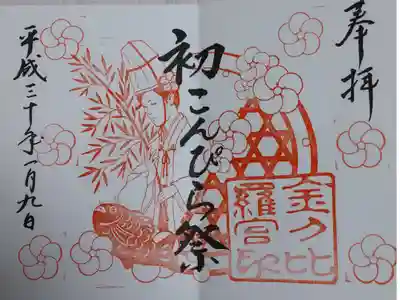 奉拝
初こんぴら祭
金刀比
羅宮
印
平成三十年一月九日